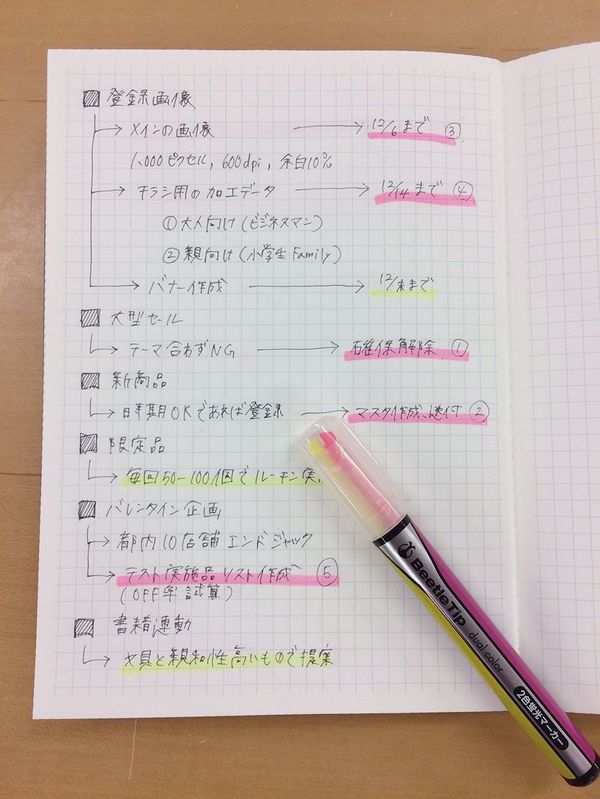 登録画像
メインの画像 → 12/6まで ③
1,000ピクセル, 600dpi, 余白10%
チラシ用の加工データ → 12/14まで ④
① 大人向け(ビジネスマン)
② 親向け(小学生Family)
バナー作成 → 12/末まで
大型セール
テーマ合わずNG → 確保解除 ①
新商品
時期OKであれば登録 → マスタ作成、送付 ②
限定品
毎回50-100個でルーチン実
バレンタイン企画
都内10店舗エンドジャック
テスト実施品リスト作成 ⑤
(OFF率試算)
書籍連動
文具と親和性高いもので提案
BeetleTip
dual color
2色蛍光マーカー